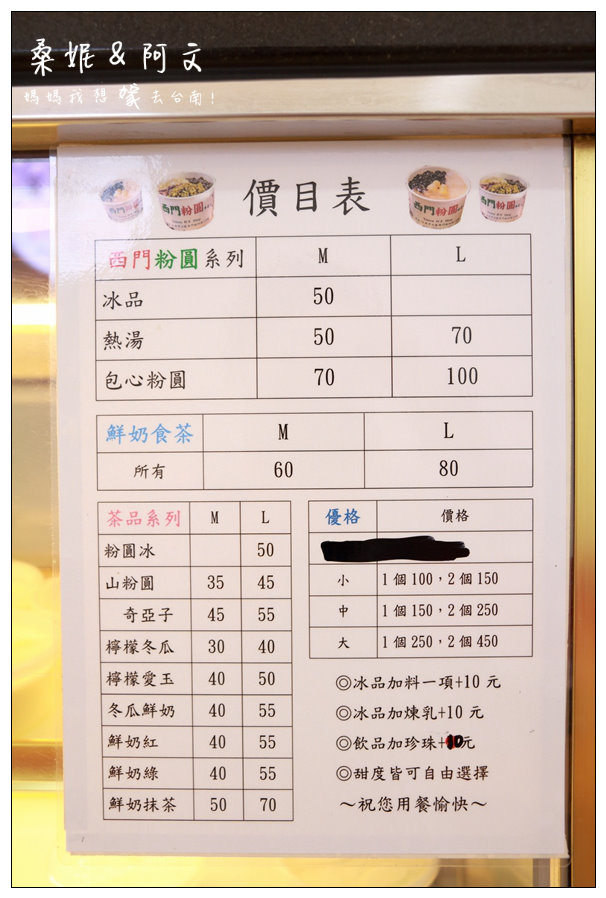 桑妮&阿文
媽媽我想嫁去台南!
價目表
西門粉圓
西門粉圓
西門粉圓系列 M L
冰品 50
熱湯 50 70
包心粉圓 70 100
鮮奶食茶 M L
所有 60 80
茶品系列 M L
粉圓冰 50
山粉圓 35 45
奇亞子 45 55
檸檬冬瓜 30 40
檸檬愛玉 40 50
冬瓜鮮奶 40 55
鮮奶紅 40 55
鮮奶綠 40 55
鮮奶抹茶 50 70
優格 價格
小 1個100,2個150
中 1個150,2個250
大 1個250,2個450
◎冰品加料一項+10 元
◎冰品加煉乳+10 元
◎飲品加珍珠+10元
◎甜度皆可自由選擇
～祝您用餐愉快～